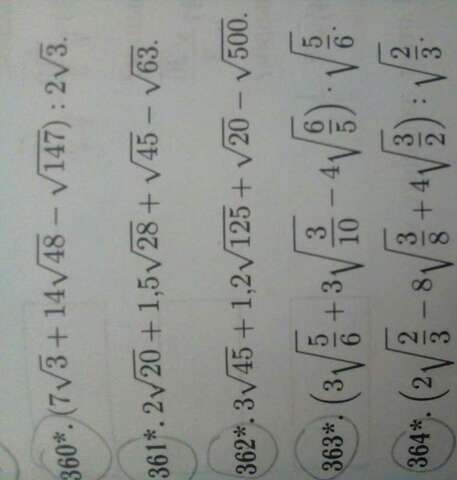 360*. (7√3 + 14√48 − √147) : 2√3.
361*. 2√20 + 1,5√28 + √45 − √63.
362*. 3√45 + 1,2√125 + √20 − √500.
363*. (3√(5/6) + 3√(3/10) − 4√(6/5)) · √(5/6).
364*. (2√(2/3) − 8√(3/8) + 4√(3/2)) : √(2/3).